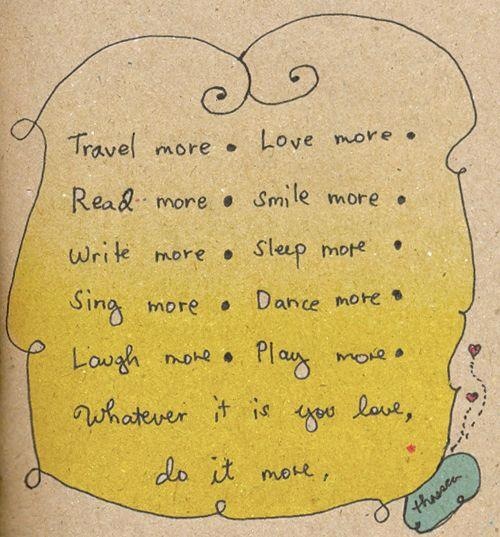 Travel more • Love more •
Read more • Smile more •
Write more • Sleep more •
Sing more • Dance more •
Laugh more • Play more •
Whatever it is you love,
do it more.